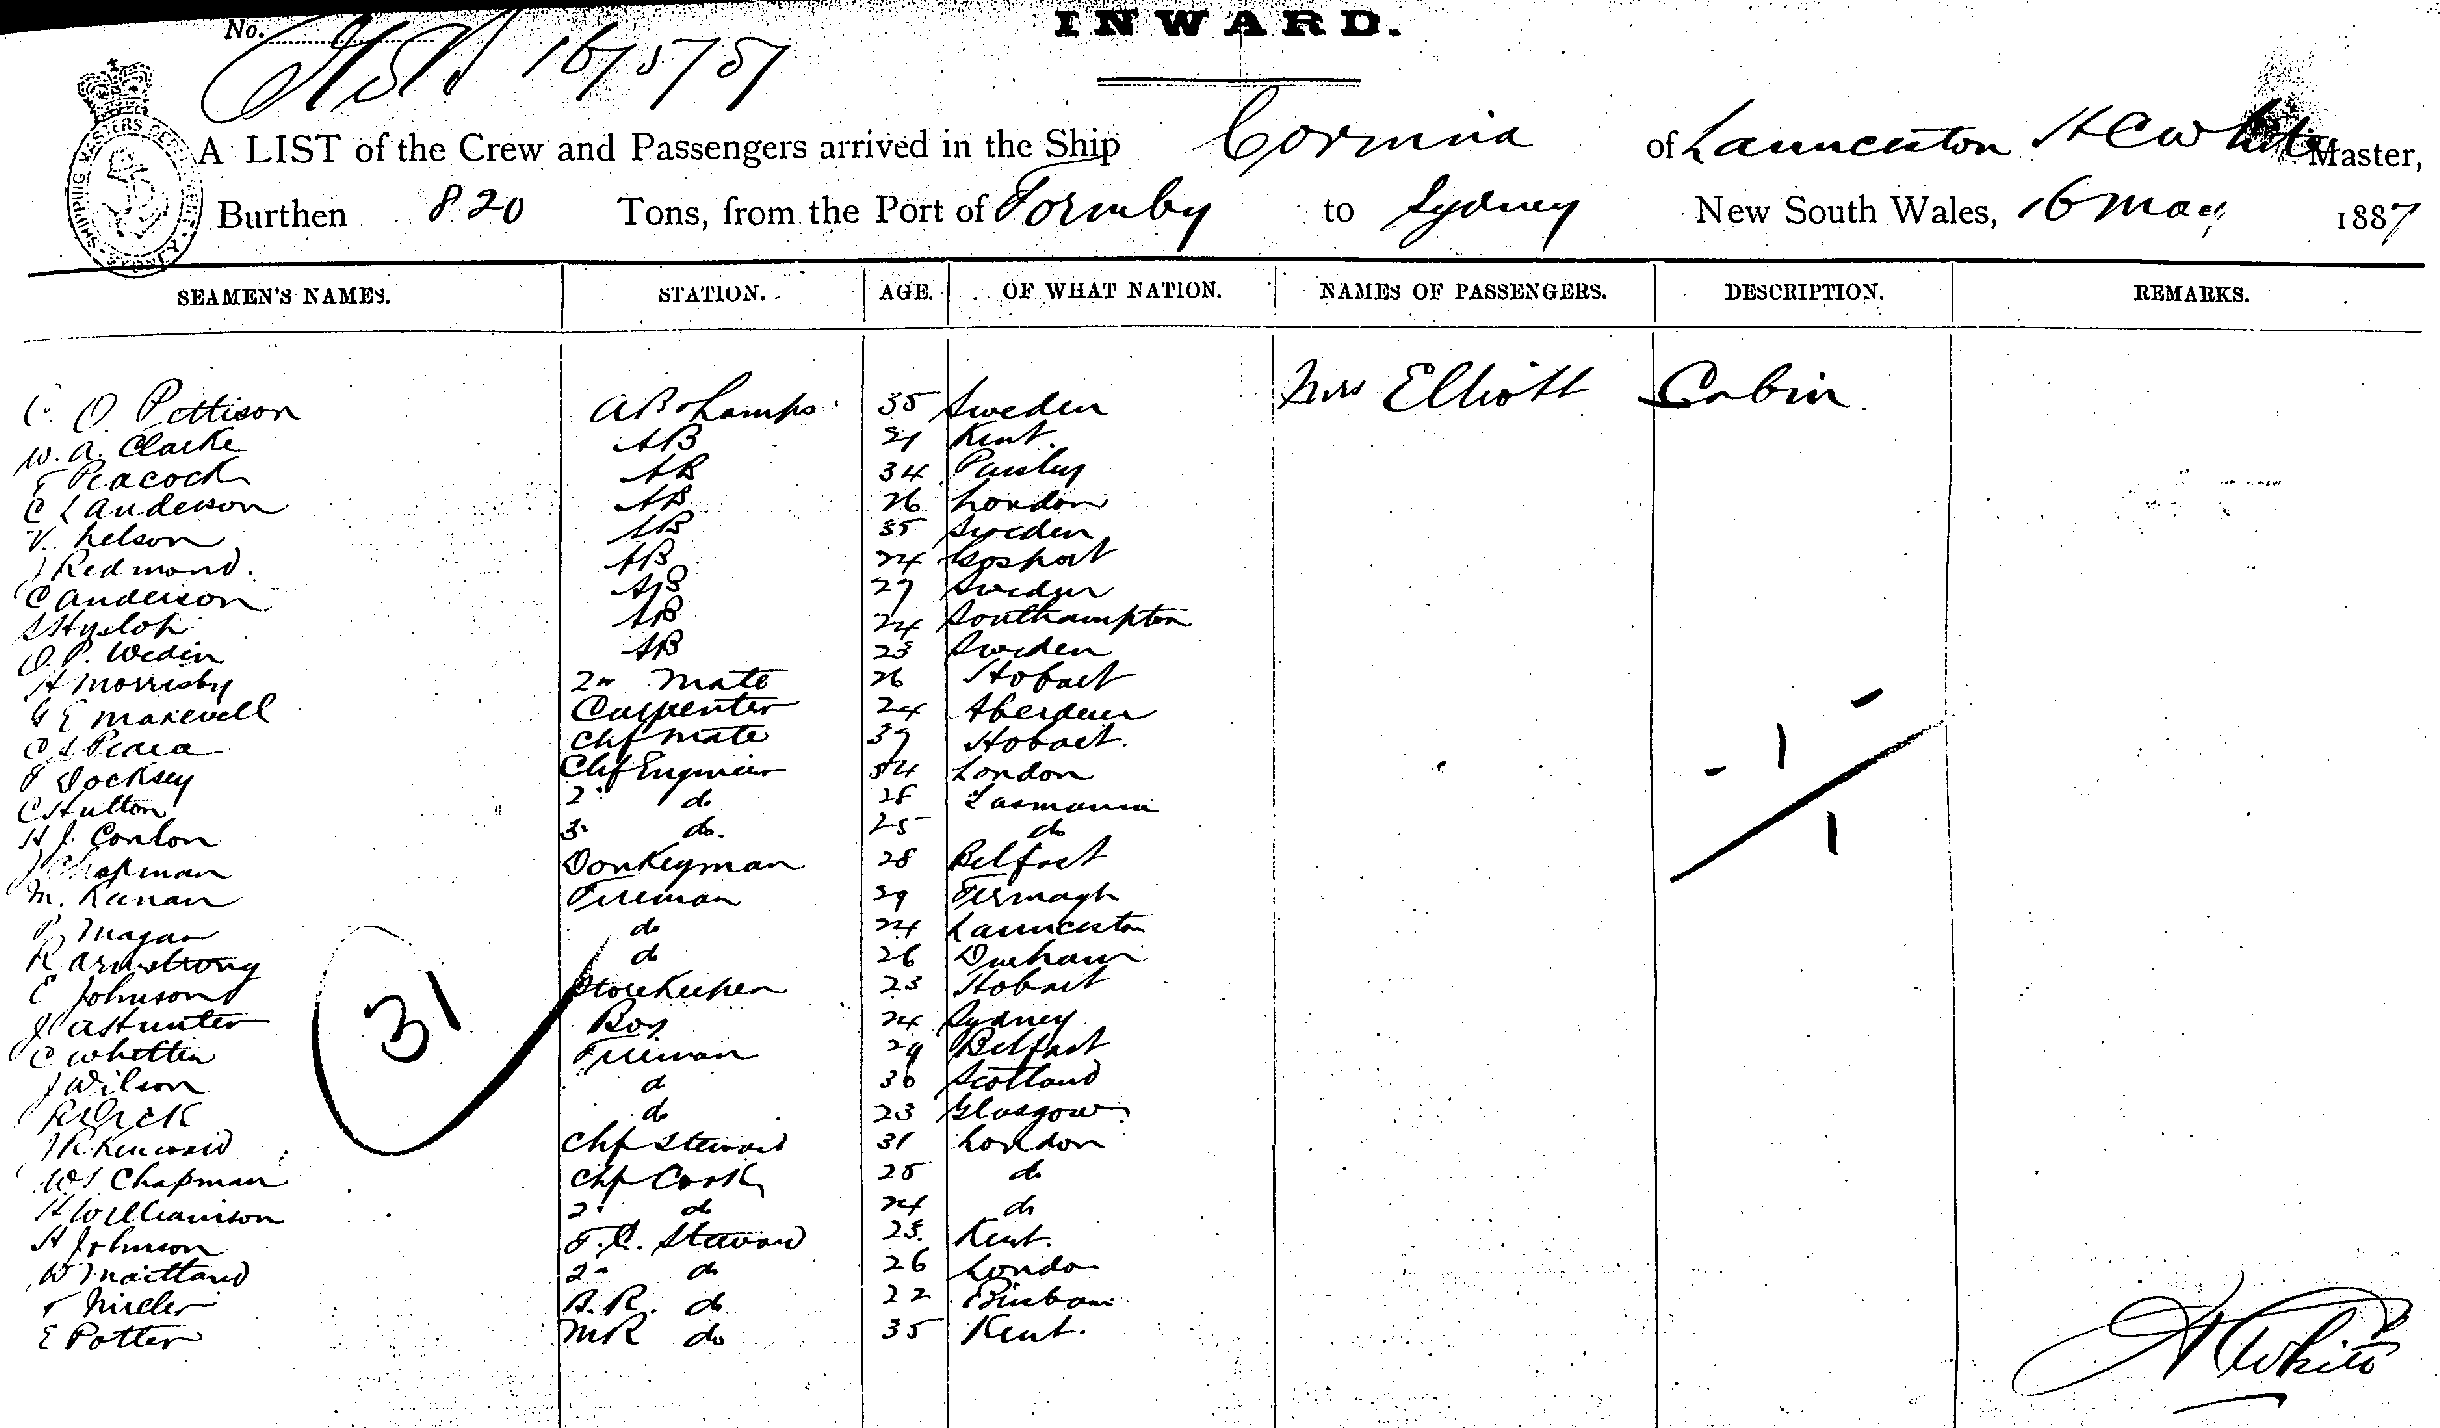 No.
16/5/87
INWARD.
A LIST of the Crew and Passengers arrived in the Ship Corinna of Launceston H C White Master,
Burthen 820 Tons, from the Port of Formby to Sydney New South Wales, 16 May 1887
SEAMEN'S NAMES. STATION. AGE. OF WHAT NATION. NAMES OF PASSENGERS. DESCRIPTION. REMARKS.
O. Pettison AB & Lamps 35 Sweden Mrs Elliott Cabin
W. A. Clarke AB 21 Kent
Peacock AB 34 Paisley
C L Anderson AB 26 London
V. Nelson AB 35 Sweden
J Redmond. AB 24 Gosport
C Anderson AB 27 Sweden
S Hyslop AB 24 Southampton
O. P. Wedin AB 23 Sweden
H Morrisby 2nd Mate 26 Hobart
G E Maxevell Carpenter 24 Aberdeen
C S Chf Mate 37 Hobart.
Docksey Chf Engineer London
C Hutton 2 do 28 Tasmania
H J. Conlon 3 do. 25 do
J Chapman Donkeyman 28 Belfast
M. Keenan Fireman 29 Fermagh
P Magan do 24 Launceston
R Armstrong do 26 Durham
C Johnson Storekeeper 23 Hobart
J A Hunter Boy 24 Sydney
C Whetten Fireman 29 Belfast
J Wilson do 30 Scotland
Dick do 23 Glasgow
J R Kenward Chf Steward 31 London
W S Chapman Chf Cook 25 do
H Williamson 2 do 24 do
H Johnson F.C. Steward 23. Kent.
W Maitland 2nd do 26 London
Miller B.R. do 22 Brisbane
E Potter MR do 35 Kent.
31
- 1 -
1
H C White